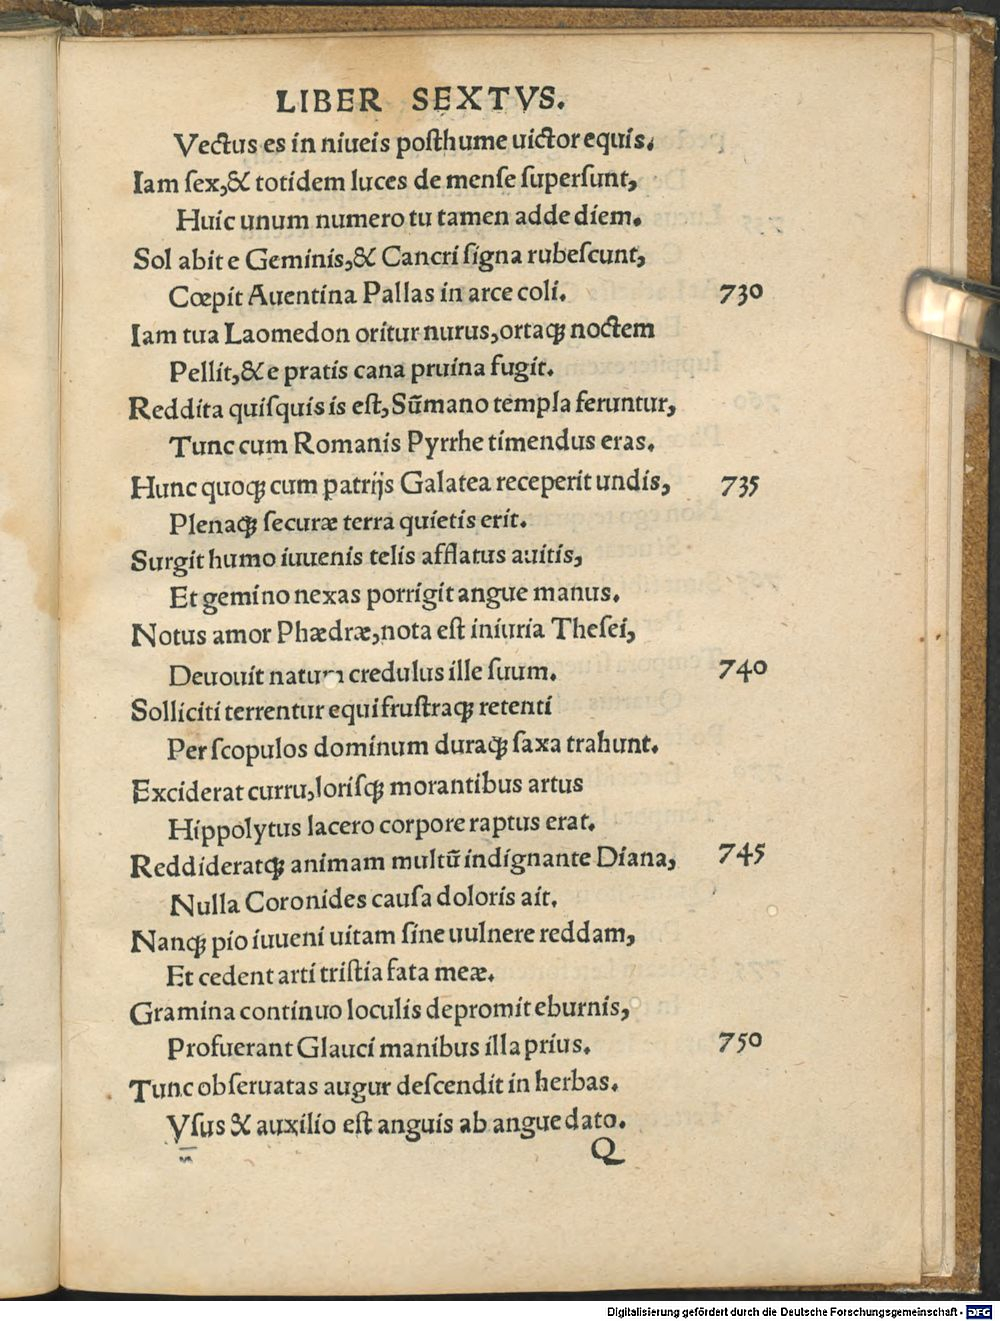 LIBER SEXTVS.
Vectus es in niueis posthume uictor equis.
Iam sex,& totidem luces de mense supersunt,
Huic unum numero tu tamen adde diem.
Sol abit e Geminis,& Cancri signa rubescunt,
Cœpit Auentina Pallas in arce coli. 730
Iam tua Laomedon oritur nurus,ortaq́; noctem
Pellit,& e pratis cana pruina fugit.
Reddita quisquis is est,Sūmano templa feruntur,
Tunc cum Romanis Pyrrhe timendus eras.
Hunc quoq́; cum patrijs Galatea receperit undis, 735
Plenaq́; securæ terra quietis erit.
Surgit humo iuuenis telis afflatus auitis,
Et gemino nexas porrigit angue manus.
Notus amor Phædræ,nota est iniuria Thesei,
Deuouit natum credulus ille suum. 740
Solliciti terrentur equi frustraq́; retenti
Per scopulos dominum duraq́; saxa trahunt.
Exciderat curru,lorisq́; morantibus artus
Hippolytus lacero corpore raptus erat.
Reddideratq́; animam multū indignante Diana, 745
Nulla Coronides causa doloris ait.
Nanq́; pio iuueni uitam sine uulnere reddam,
Et cedent arti tristia fata meæ.
Gramina continuo loculis depromit eburnis,
Profuerant Glauci manibus illa prius. 750
Tunc obseruatas augur descendit in herbas.
Vsus & auxilio est anguis ab angue dato.
Q
Digitalisierung gefördert durch die Deutsche Forschungsgemeinschaft - DFG